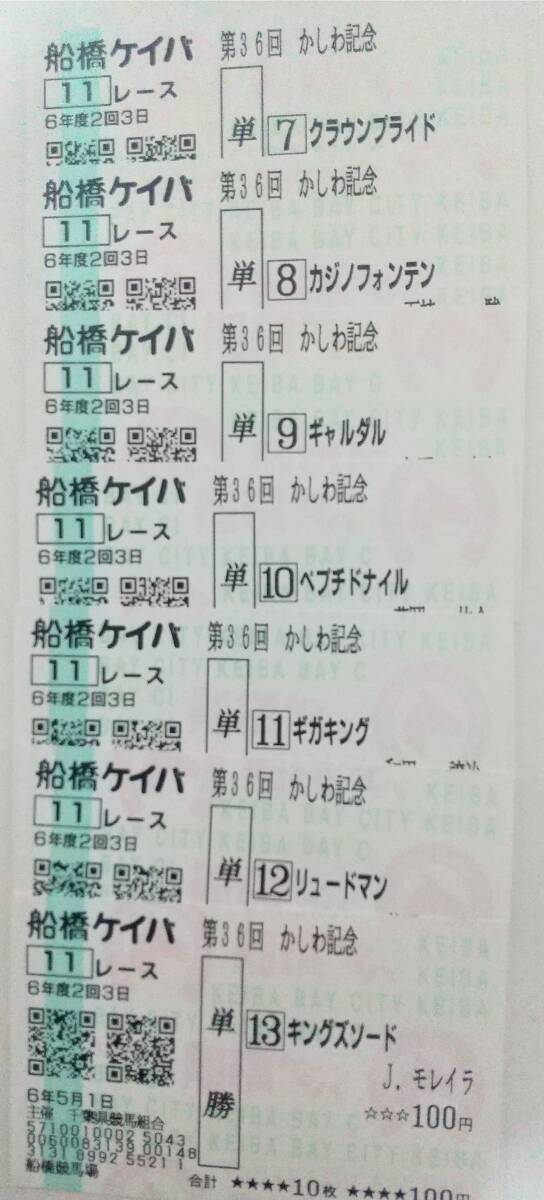 船橋ケイバ 第36回 かしわ記念
11レース
6年度2回3日
単 7 クラウンプライド
船橋ケイバ 第36回 かしわ記念
11レース
6年度2回3日
単 8 カジノフォンテン
船橋ケイバ 第36回 かしわ記念
11レース
6年度2回3日
単 9 ギャルダル
船橋ケイバ 第36回 かしわ記念
11レース
6年度2回3日
単 10 ペプチドナイル
船橋ケイバ 第36回 かしわ記念
11レース
6年度2回3日
単 11 ギガキング
船橋ケイバ 第36回 かしわ記念
11レース
6年度2回3日
単 12 リュードマン
船橋ケイバ 第36回 かしわ記念
11レース
6年度2回3日
単勝 13 キングズソード
J. モレイラ
☆☆☆100円
6年5月1日
主催 千葉県競馬組合
5710010002 5043
3131 8992 5521 1
船橋競馬場
合計 ★★★★10枚 ★★★★100円